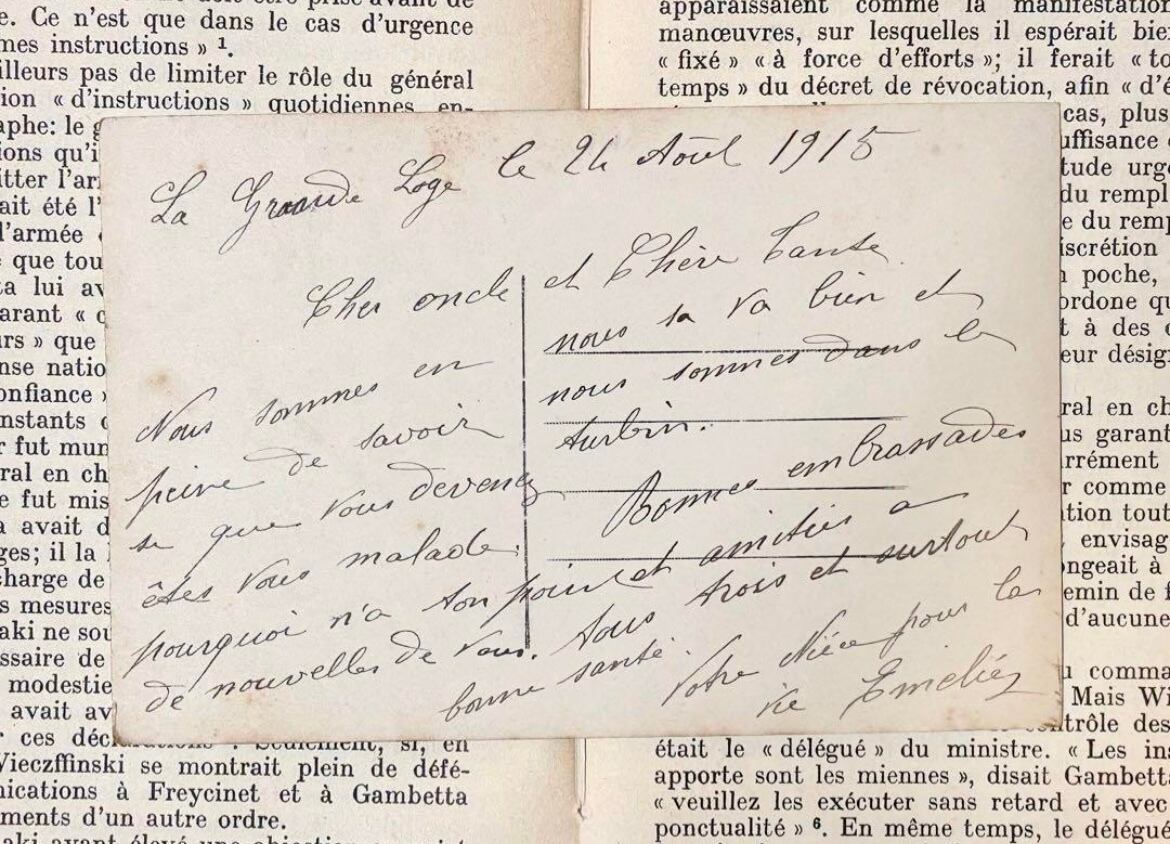 e. Ce n'est que dans le cas d'urgence
mes instructions » ¹.
illeurs pas de limiter le rôle du général
ion « d'instructions » quotidiennes, en-
aphe: le g
ions qu'i
itter l'ar
ait été l'
l'armée
e que tou
ta lui av
arant « c
urs » que
nse natio
onfiance »
nstants
r fut mun
ral en ch
e fut mis
a avait d
ges; il la
charge de
s mesures
aki ne sou
ssaire de
modestie
avait av
r ces décl
Vieczffinski se montrait plein de défé-
nications à Freycinet et à Gambetta
ments d'un autre ordre.
La Graande Loge le 24 Aout 1915
Cher oncle et Chère Tante
Nous sommes en
peine de savoir
se que vous devenez
êtes vous malade.
pourquoi n'a ton point
de nouvelles de vous.
nous sa va bien et
nous sommes dans le
turbin.
Bonnes embrassades
et amitiés a
tous trois et surtout
bonne santé.
Votre Nièce pour la
vie Eméliez
apparaissaient comme la manifestation
manœuvres, sur lesquelles il espérait bie
« fixé » « à force d'efforts »; il ferait « to
temps » du décret de révocation, afin « d'é
cas, plus
uffisance
tude urge
du rempl
e du remp
iscrétion
n poche,
ordone qu
t à des
eur désig
ral en ch
us garant
rrément
r comme
ation tout
envisag
ongeait à
emin de f
d'aucune
u comma
Mais Wi
ntrôle des
était le « délégué » du ministre. « Les ins
apporte sont les miennes », disait Gambetta
« veuillez les exécuter sans retard et avec
ponctualité » ⁶. En même temps, le délégué